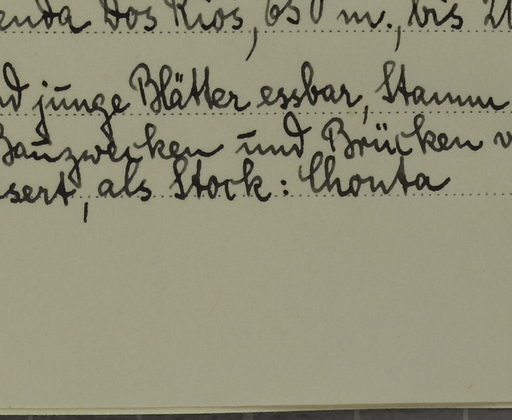 enda Dos Rios, 650 m., bis 20
nd junge Blätter essbar, Stamm
Bauzwecken und Brücken v
sert, als Stock: Chonta